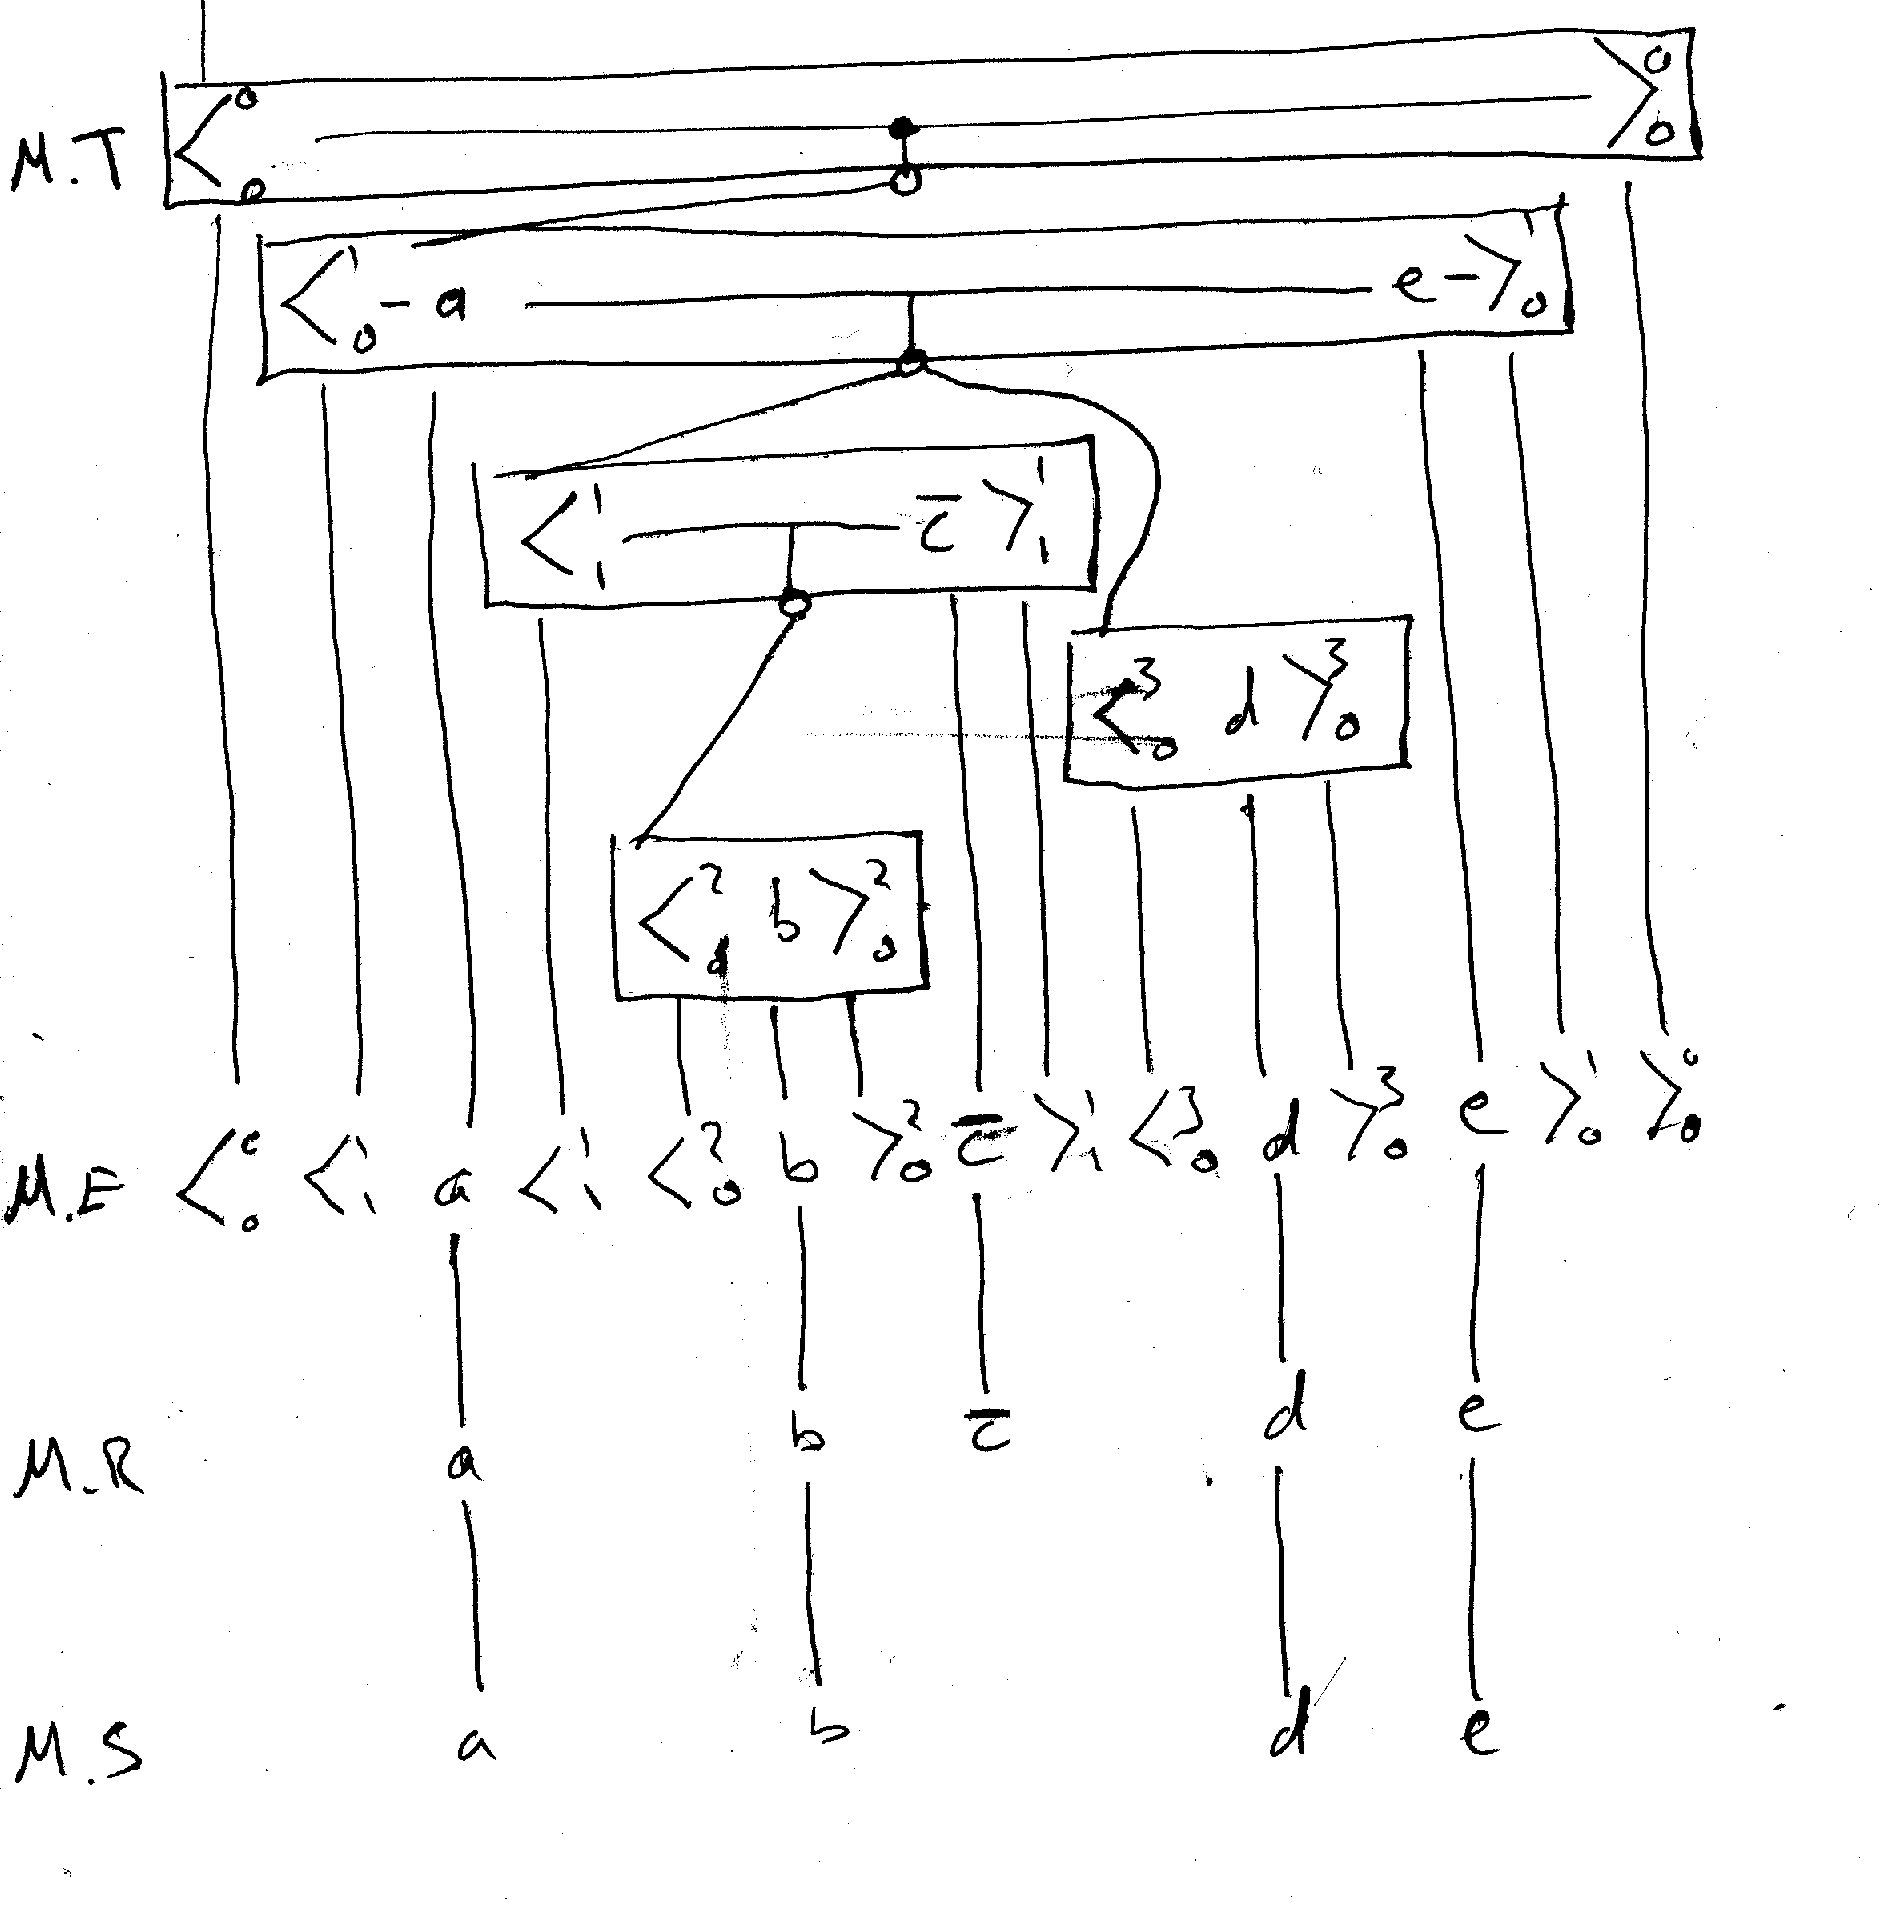 M.T <⁰₀ >⁰₀
<¹₀ - a e - >¹₀
<¹₁ c̅ >¹₁
<³₀ d >³₀
<²₀ b >²₀
M.E <⁰₀ <¹₁ a <¹₁ <²₀ b >²₀ c̅ >¹₁ <³₀ d >³₀ e >¹₀ >⁰₀
M.R a b c̅ d e
M.S a b d e